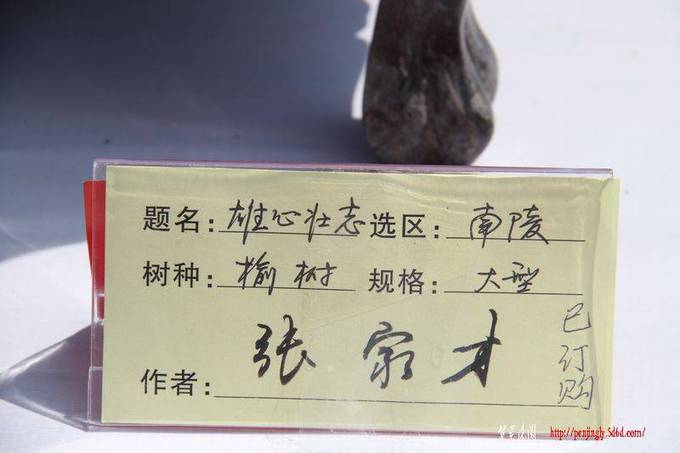 题名：雄心壮志 选区：南陵
树种：榆树 规格：大型
作者：张家才
已订购
http://penjingly.5d6d.com/